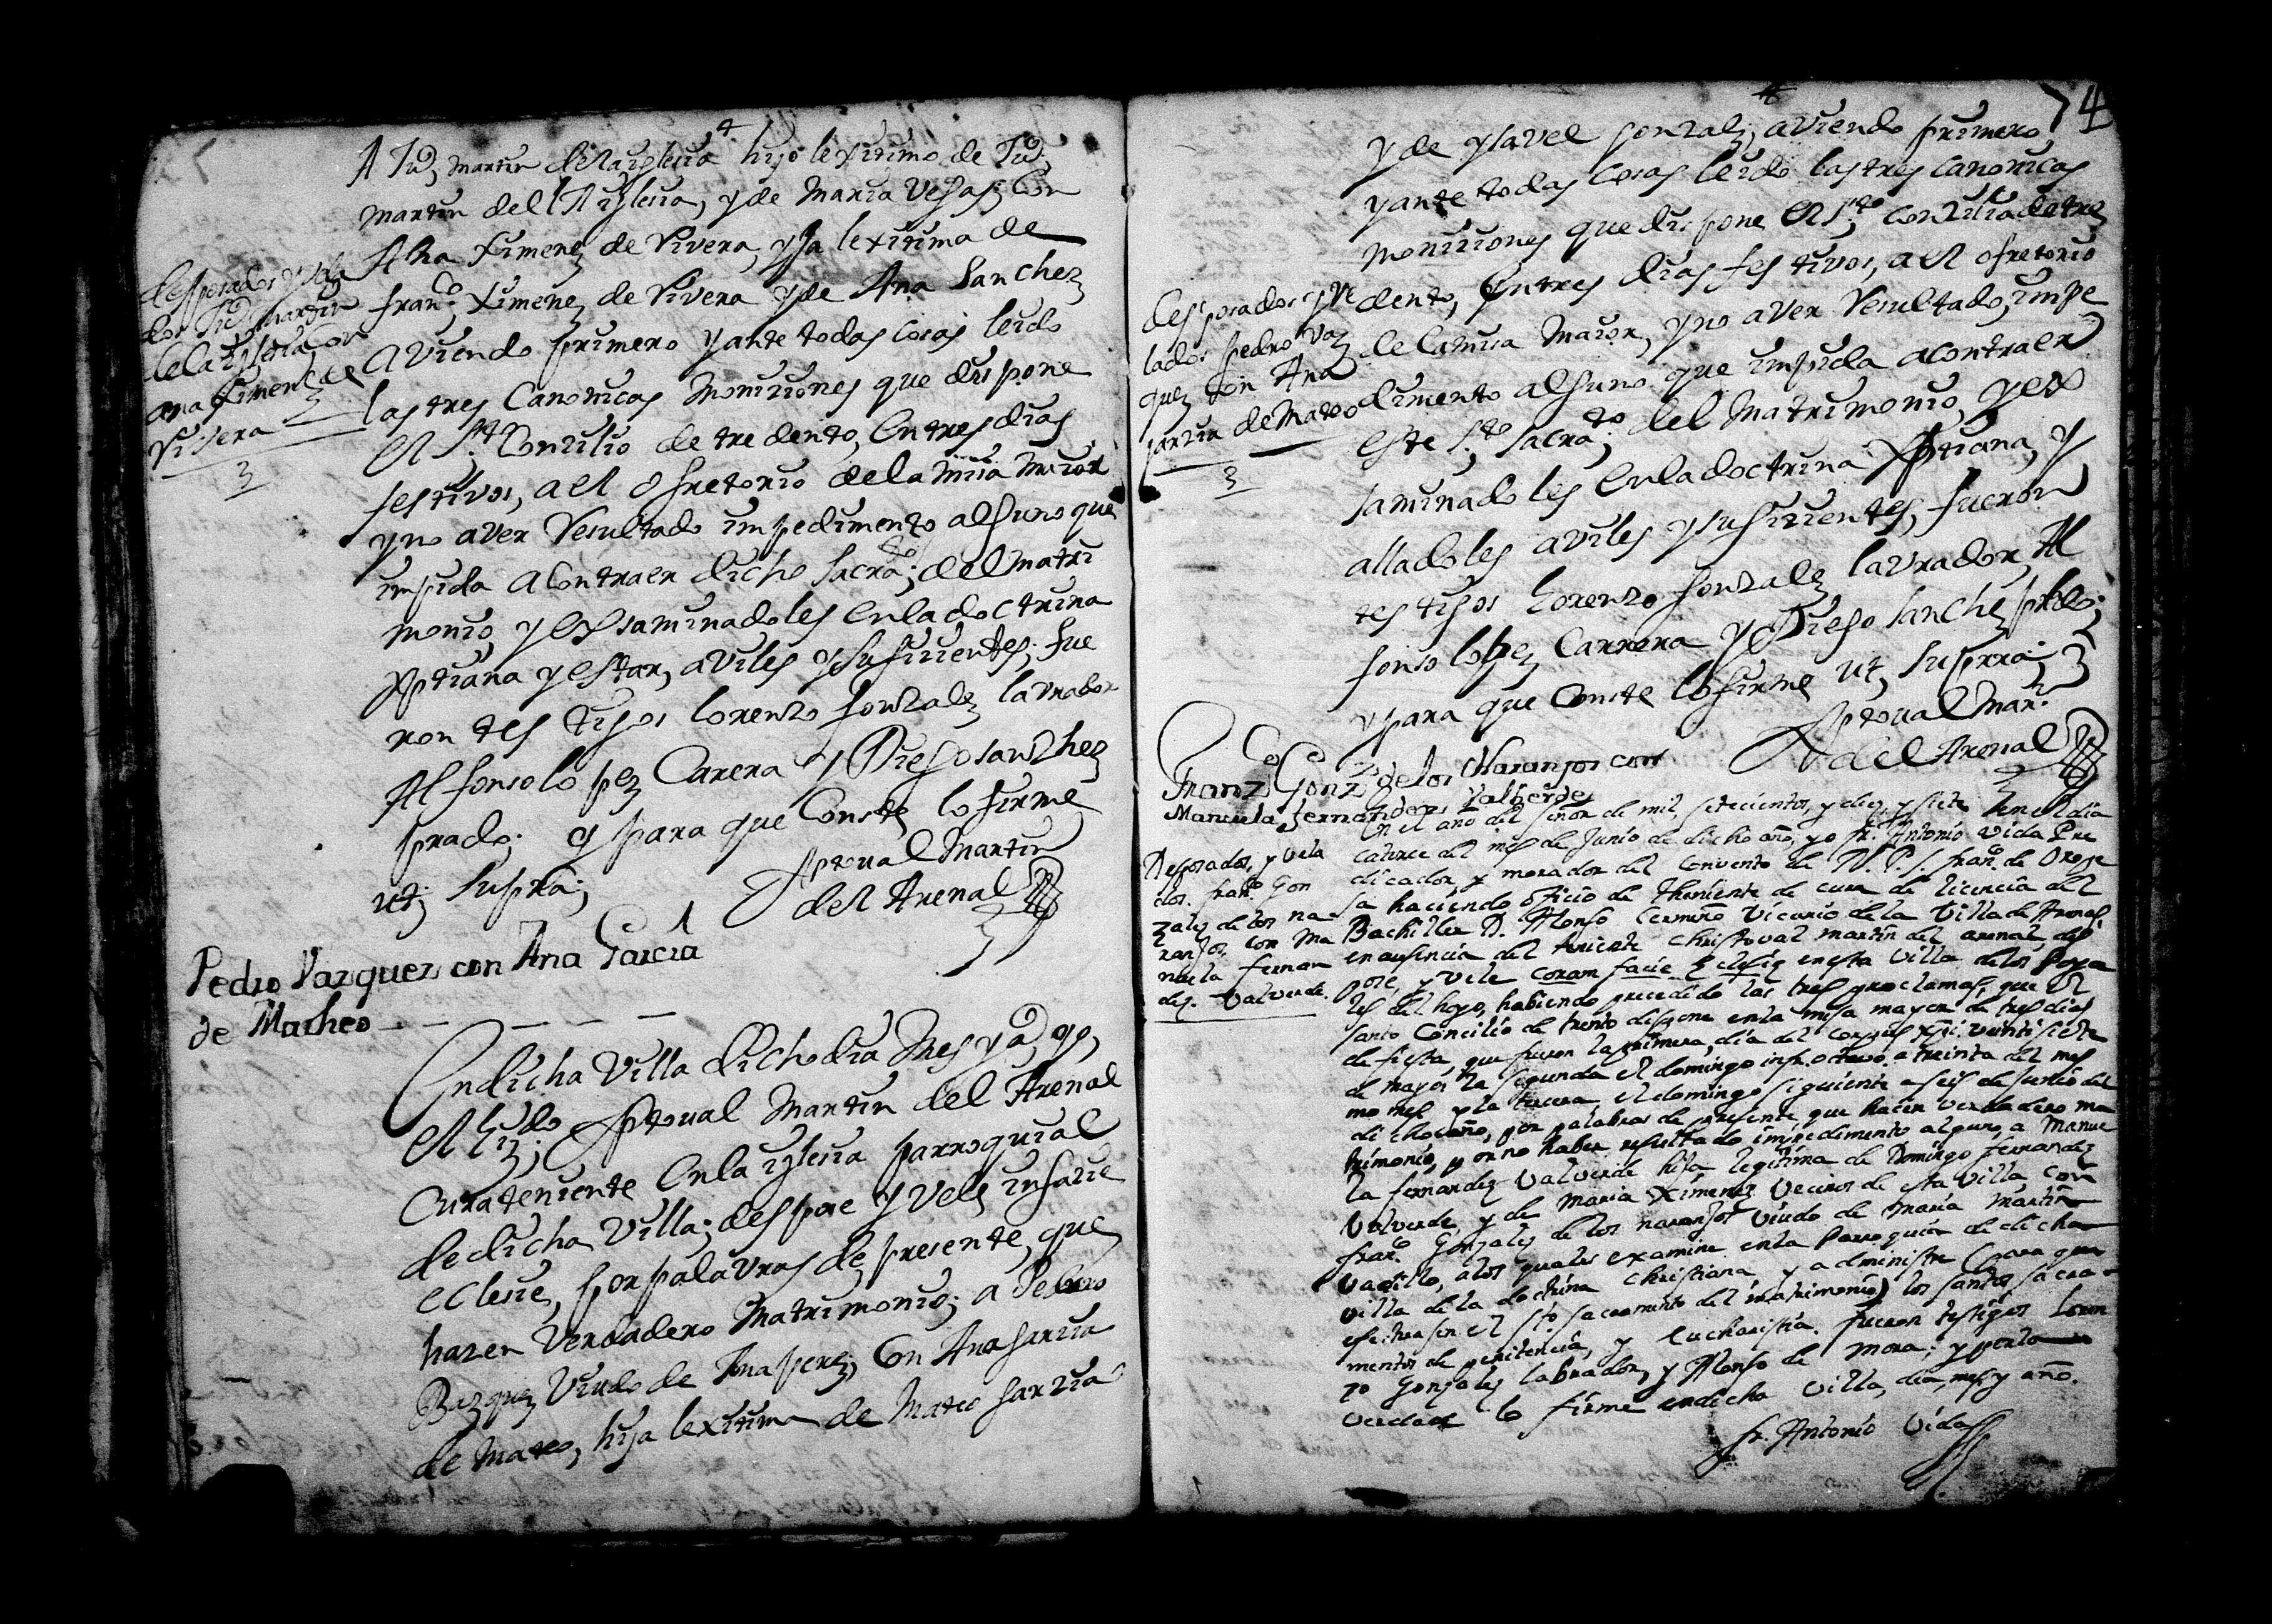 A Juº Martin de la yglesia hijo lexitimo de Juº
Martin dellA yglesia, y de Maria Vegas; Con
Ana Ximenez de Vivera, yja lexitima de
Franco; Ximenez de Vivera y de Ana Sanchez
aviendo primero y ante todas cosas leido
las tres Canonicas Moniziones que dispone
el Sto Conzilio de tredento, en tres dias
festivos, a el ofretorio de la misa maior
y no aver Resultado impedimento alguno que
impida a contraer dicho Sacrato; del matri
monio, y exsaminadoles en la doctrina
Xptiana y estar, aviles y sufizientes; fue
ron tes tigos lorenzo gonzalez lavrador
Alfonso lopez Carera y Diego sanzhez
prado; y para que Conste lo firme
ut; supra;
Xptoual Martin
del Arenal
desposados y vela
dos Juº martin
de la iglesia Con
ana Ximenez de
Vivera
Pedro Vazquez con Ana Garcia
de Matheo
En dicha Villa dicho dia Mes y aº yo,
el lizdo; Xptoual Martin del Arenal
Cura teniente en la iglesia parroquial
de dicha Villa; despose y vele infazie
eclesie, por palavras de presente, que
hazen Verdadero Matrimonio; a Pedro
Bazquez Viudo de Ana perez; Con Ana garzia
de Mateo, hija lexitima de Mateo garzia
74
y de ysavel gonzalez; aviendo primero
y ante todas cosas leido las tres canonicas
moniziones que dispone el Sto; conzilio de tre
dento, en tres dias festivos, a el ofretorio
de la misa maior, y no aver Resultado, impe
dimento alguno que impida a contraer
este Sto; sacrato; del Matrimonio, y ex
saminadoles en la doctrina Xptiana, y
alladoles aviles y sufizientes, fueron
testigos lorenzo gonzalez lavrador, Al
fonso lopez Carrera y Diego Sanchez prado;
y para que Conste lo firme ut, supra;
Xptoual Marn
del Arenal
desposados y ve
lados pedro Vaz
quez con Ana
garzia de Mateo
Franco Gonz de los Naranjos con
Manuela Fernandez Valberde
Desposados, y vela
dos. Franco Gon
zalez de los na
ranjos, con Ma
nuela fernan
dez. Valverde.
En el año del señor de mil, setecientos, y diez, y siete en el dia
catorce del mes de Junio de dicho año, yo fr. Antonio Vida Pre
dicador, y morador del Convento de N. P. S. Franco de Orope
sa haciendo oficio de theniente de cura de licencia del
Bachiller D. Alonso Cermeño Vicario de la Villa de Arenas,
en ausencia del teniente Christoval Martin del arenal des
posé, y velé coram facie Eclesię en esta Villa de los Poya
les del hoyo, habiendo precedido las tres proclamas, que el
santo Concilio de trento dispone en la misa mayor de tres dias
de fiesta, que fueron la primera, dia del Corpus Xpi. veinti siete
de mayo; la segunda el domingo infr. octavo. a treinta del mes
mo mes y la tercera el domingo siguiente a seis de Junio del
dicho año, por palabras de presente que hacen verdadero ma
trimonio, y on no haber resultado impedimento alguno, a Manue
la fernandez Valverde hija legitima de Domingo fernandez
Valverde, y de Maria Ximenez vecinos de esta villa con
Franco Gonzalez de los naranjos viudo de Maria Martin
Vadillo, a los quales examine en la Parroquia de dicha
villa de la doctrina christiana y administre (para que
efectuasen el sto sacramento del matrimonio) los santos sacra
mentos de penitencia, y Eucharistia. fueron testigos Loren
zo Gonzalez labrador, y Alonso de Mora; y por la
verdad lo firme en dicha villa, dia, mes, y año.
fr. Antonio Vida